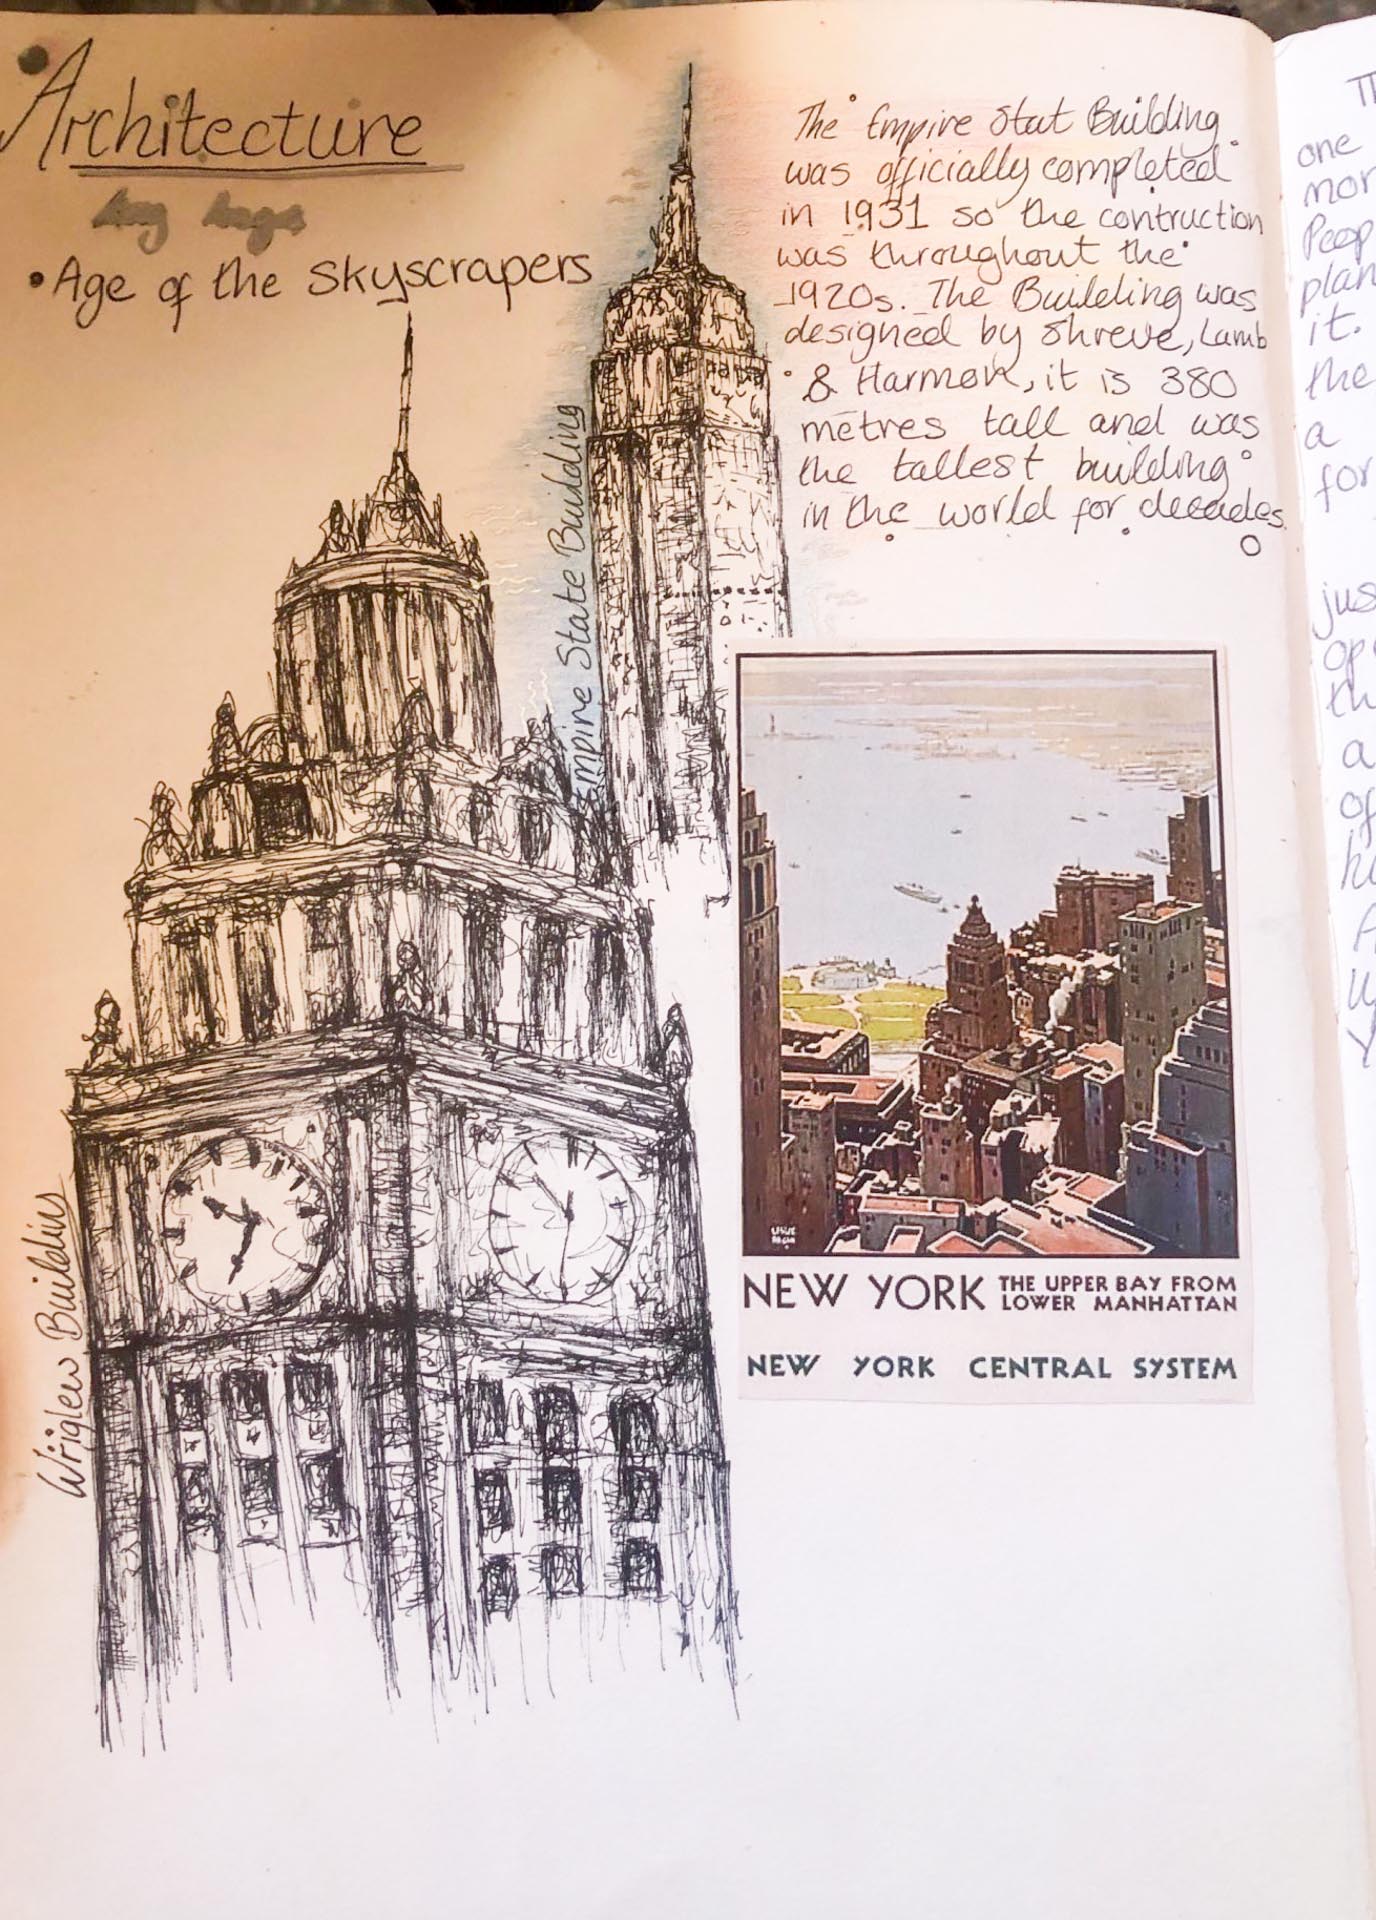 Architecture
• Age of the Skyscrapers
The Empire Stat Building
was officially completed
in 1931 so the contruction
was throughout the
1920s. The Building was
designed by Shreve, Lamb
& Harmon, it is 380
metres tall and was
the tallest building
in the world for decades.
Empire State Building
Wriglew Building
LESLIE
RAGAN
NEW YORK THE UPPER BAY FROM
LOWER MANHATTAN
NEW YORK CENTRAL SYSTEM
one
it.
the
a
for
a